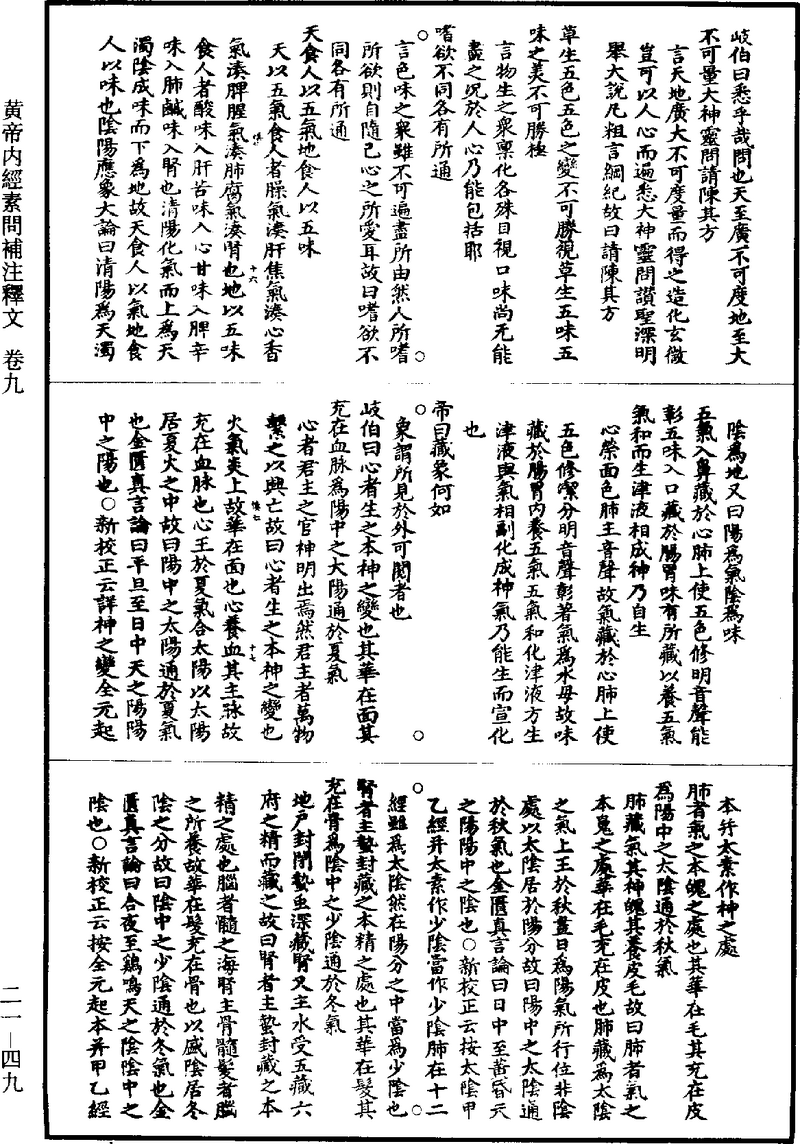 黄帝内經素問補注釋文　卷九
二一—四九
岐伯曰悉乎哉問也天至廣不可度地至大
不可量大神靈問請陳其方
言天地廣大不可度量而得之造化玄微
豈可以人心而遍悉大神靈問讚聖深明
舉大說凡粗言綱紀故曰請陳其方
草生五色五色之變不可勝視草生五味五
味之美不可勝極
言物生之衆禀化各殊目視口味尚无能
盡之况於人心乃能包括耶
嗜欲不同各有所通
言色味之衆雖不可遍盡所由然人所嗜
所欲則自隨己心之所愛耳故曰嗜欲不
同各有所通
天食人以五氣地食人以五味
天以五氣食人者臊氣湊肝焦氣湊心香
氣湊脾腥氣湊肺腐氣湊腎也地以五味
食人者酸味入肝苦味入心甘味入脾辛
味入肺鹹味入腎也清陽化氣而上爲天
濁陰成味而下爲地故天食人以氣地食
人以味也陰陽應象大論曰清陽爲天濁
十六
陰爲地又曰陽爲氣陰爲味
五氣入鼻藏於心肺上使五色修明音聲能
彰五味入口藏於腸胃味有所藏以養五氣
氣和而生津液相成神乃自生
心榮面色肺主音聲故氣藏於心肺上使
五色修潔分明音聲彰著氣爲水母故味
藏於腸胃内養五氣五氣和化津液方生
津液與氣相副化成神氣乃能生而宣化
也
帝曰藏象何如
象謂所見於外可閱者也
岐伯曰心者生之本神之變也其華在面其
充在血脉爲陽中之太陽通於夏氣
心者君主之官神明出焉然君主者萬物
繫之以興亡故曰心者生之本神之變也
火氣炎上故華在面也心養血其主脉故
充在血脉也心王於夏氣合太陽以太陽
居夏火之中故曰陽中之太陽通於夏氣
也金匱真言論曰平旦至日中天之陽陽
中之陽也○新校正云詳神之變全元起
十七
本并太素作神之處
肺者氣之本魄之處也其華在毛其充在皮
爲陽中之太陰通於秋氣
肺藏氣其神魄其養皮毛故曰肺者氣之
本魄之處華在毛充在皮也肺藏爲太陰
之氣上王於秋晝日爲陽氣所行位非陰
處以太陰居於陽分故曰陽中之太陰通
於秋氣也金匱真言論曰日中至黄昏天
之陽陽中之陰也○新校正云按太陰甲
乙經并太素作少陰當作少陰肺在十二
經雖爲太陰然在陽分之中當爲少陰也
腎者主蟄封藏之本精之處也其華在髮其
充在骨爲陰中之少陰通於冬氣
地户封閉蟄虫深藏腎又主水受五藏六
府之精而藏之故曰腎者主蟄封藏之本
精之處也腦者髓之海腎主骨髓髮者腦
之所養故華在髮充在骨也以盛陰居冬
陰之分故曰陰中之少陰通於冬氣也金
匱真言論曰合夜至鷄鳴天之陰陰中之
陰也○新校正云按全元起本并甲乙經